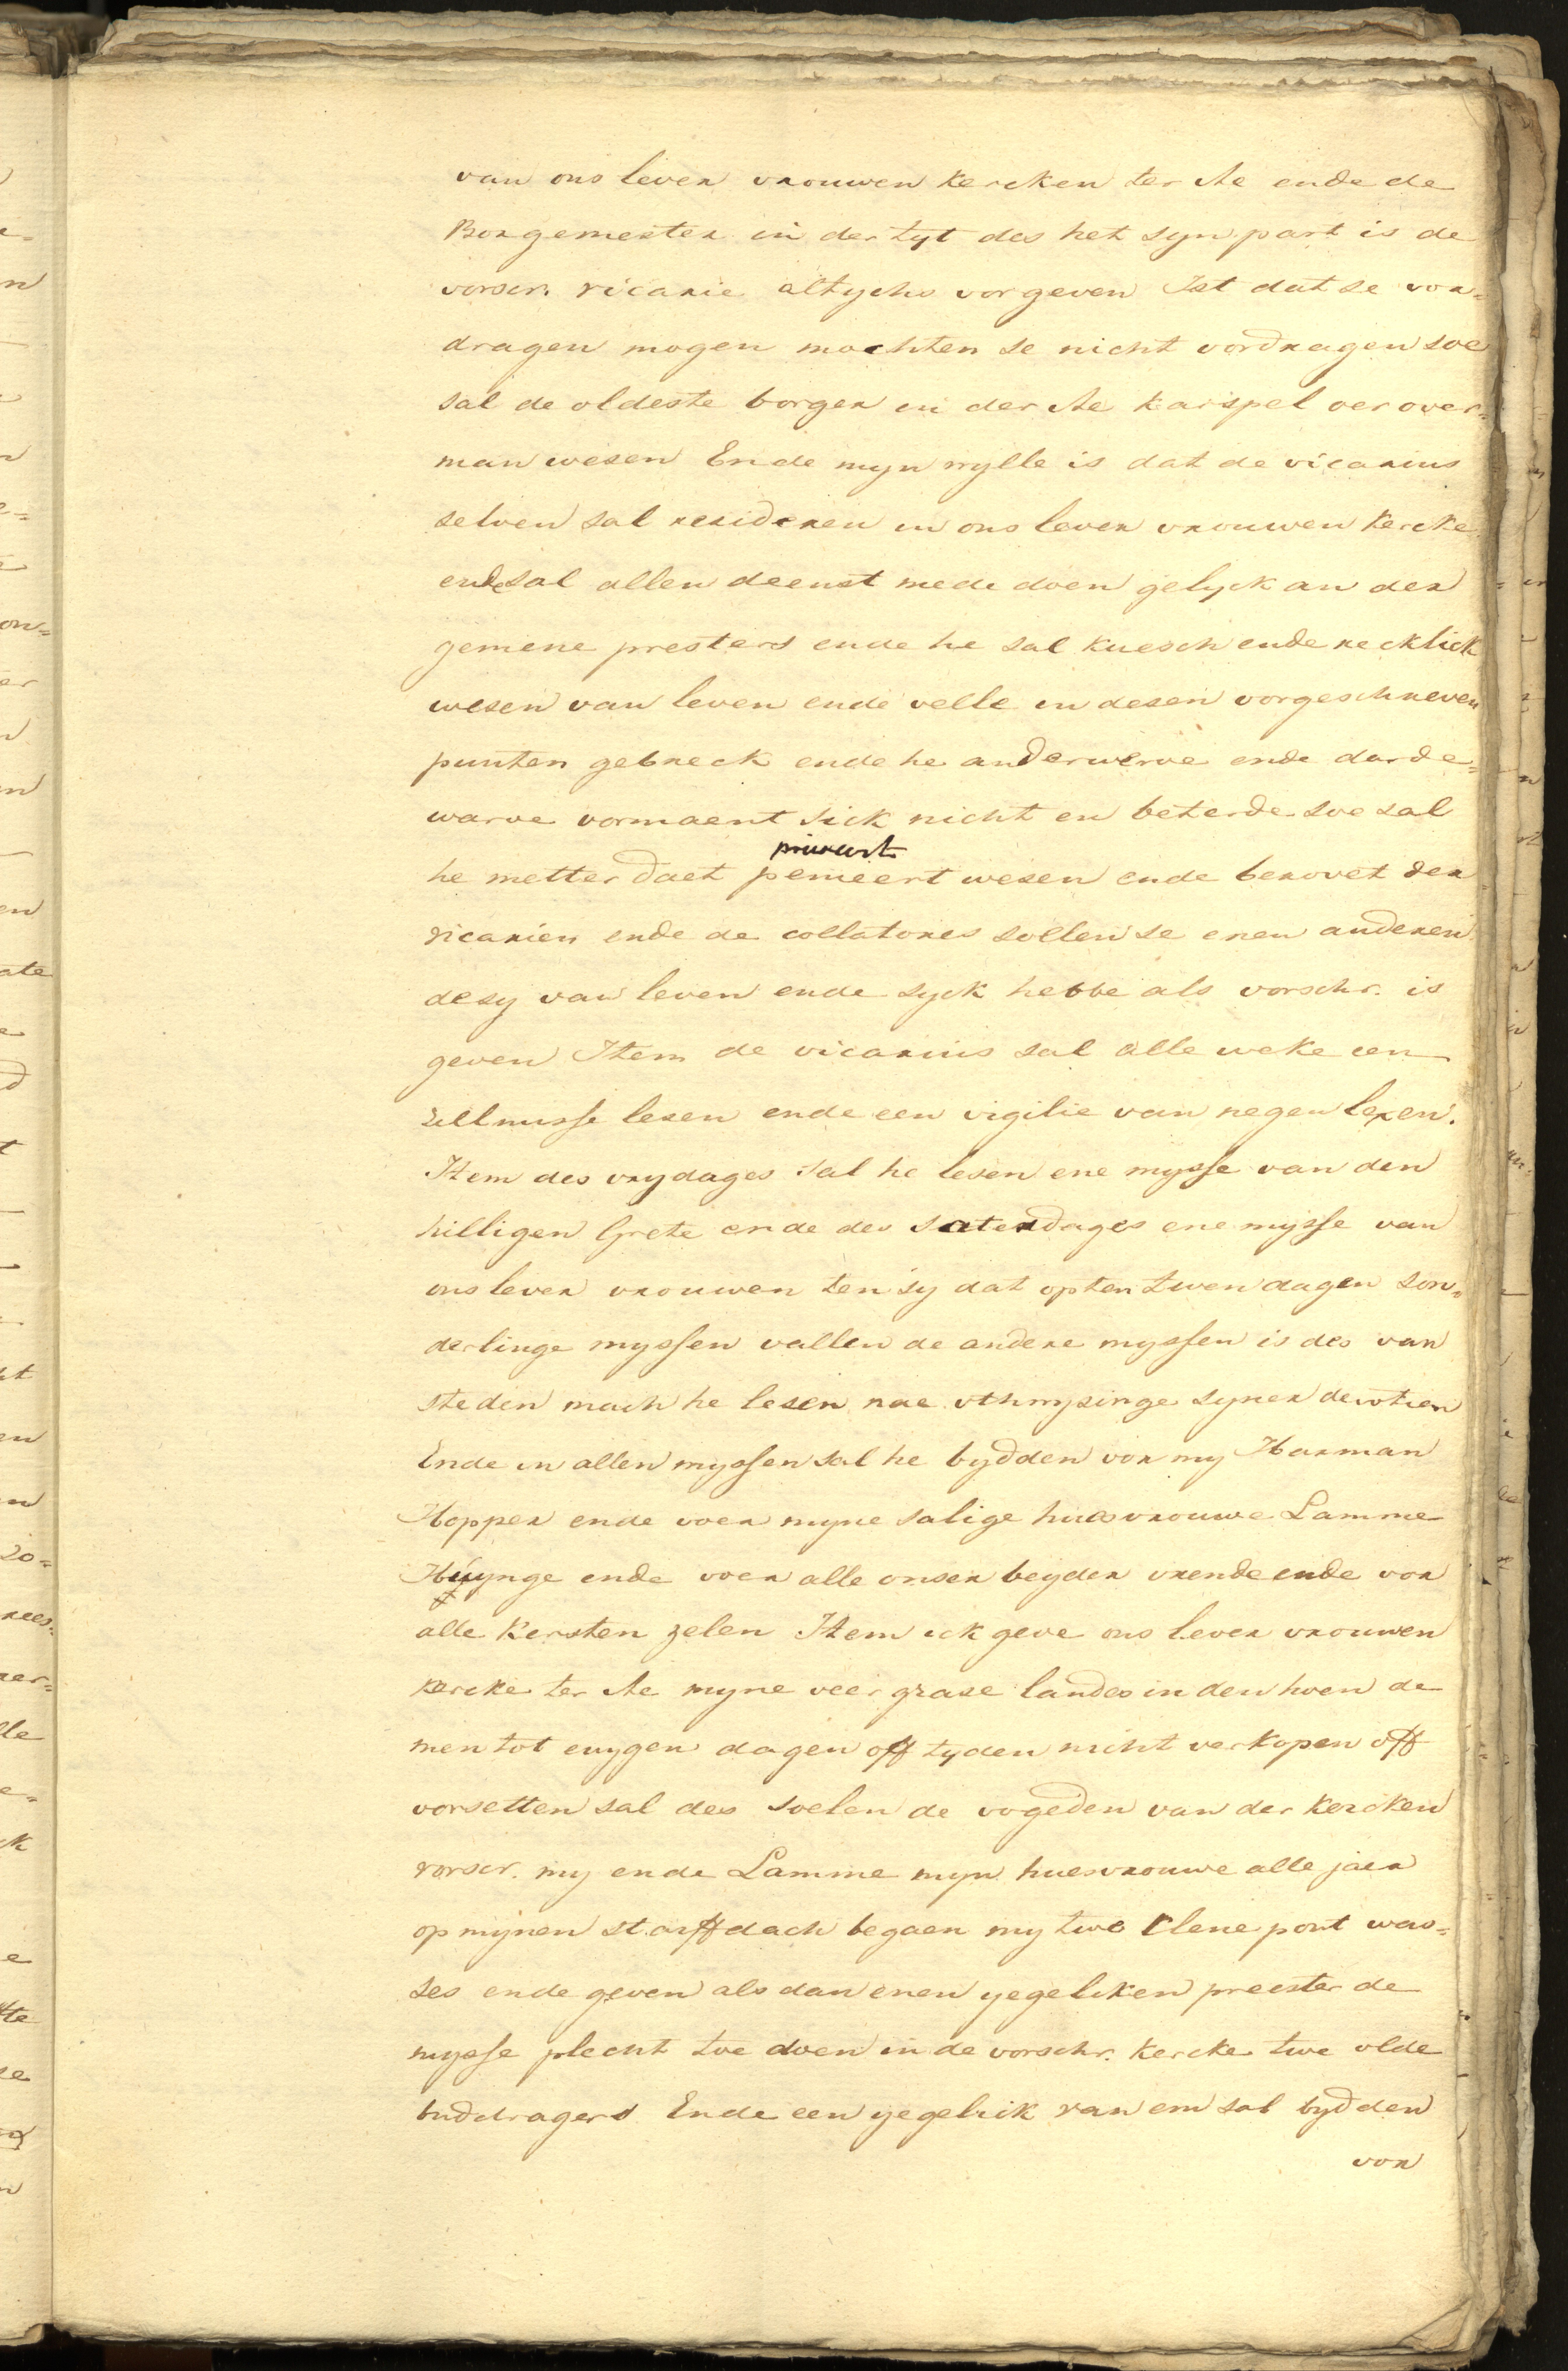 van ons lever vrouwen Kercken ter Ae ende de
Borgemester in der tyt des het syn part is de
vorscr. vicarie altychs vorgeven Ist dat se vor=
dragen mogen mochten se nicht vordragen soe
sal de oldeste borger in der Ae Karspel oer over=
man wesen Ende myn wylle is dat de vicarius
selven sal resideren in ons lever vrouwen Kercke
ende sal allen deenst mede doen gelyck an der
gemene presters ende he sal kuesch ende recklick
wesen van leven ende velle in desen vorgeschreven
punten gebreck ende he anderwerve ende darde=
warve vormaent sick nicht en beterde soe sal
priveert
he metter daet peneert wesen ende berovet der
vicarien ende de collatores sollen se enen anderen
de sy van leven ende syck hebbe als vorschr. is
geven Item de vicarius sal alle weke een
zellmisse lesen ende een vigilie van negen lexen.
Item des vrydages sal he lesen ene mysse van den
hilligen Crete ende des saterdages ene mysse van
ons lever vrouwen ten sy dat opten twen dagen son=
derlinge myssen vallen de andere myssen is des van
steden mach he lesen nae uthwysinge syner devotien
Ende in allen myssen sal he bydden vor my Harman
Hopper ende voer myne salige huesvrouwe Lamme
Huynge ende voer alle onser beyder vrende ende vor
alle Kersten zelen Item ick geve ons lever vrouwen
kercke ter Ae myne veer grase landes in den hoen de
men tot euygen dagen off tyden nicht verkopen off
vorsetten sal des soelen de vogeden van der Kercken
vorscr. my ende Lamme myn huesvrouwe alle jaer
op mynen starffdach begaen my twe Clene pont was=
ses ende geven als dan enen yegeliken preester de
mysse plecht toe doen in de vorschr. Kercke twe olde
buddragers Ende een yegelick van em sal bydden
vor